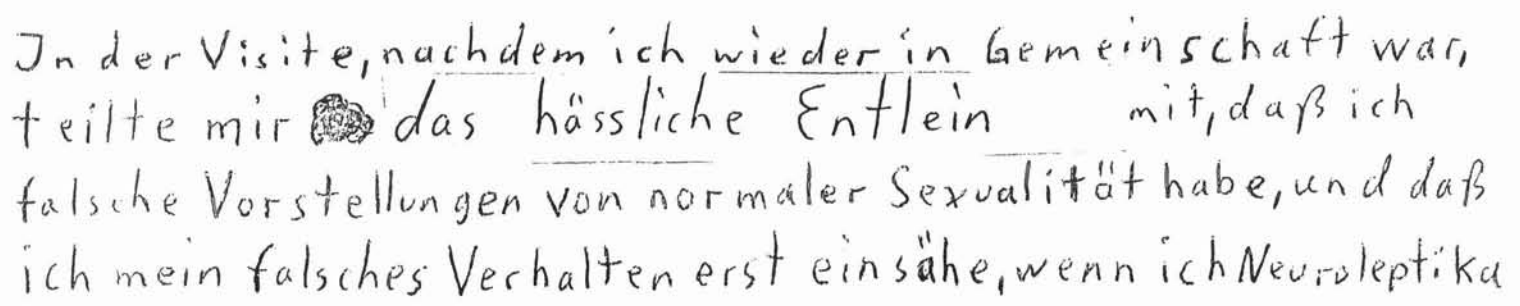 In der Visite, nachdem ich wieder in Gemeinschaft war,
teilte mir das hässliche Entlein mit, daß ich
falsche Vorstellungen von normaler Sexualität habe, und daß
ich mein falsches Verhalten erst einsähe, wenn ich Neuroleptika